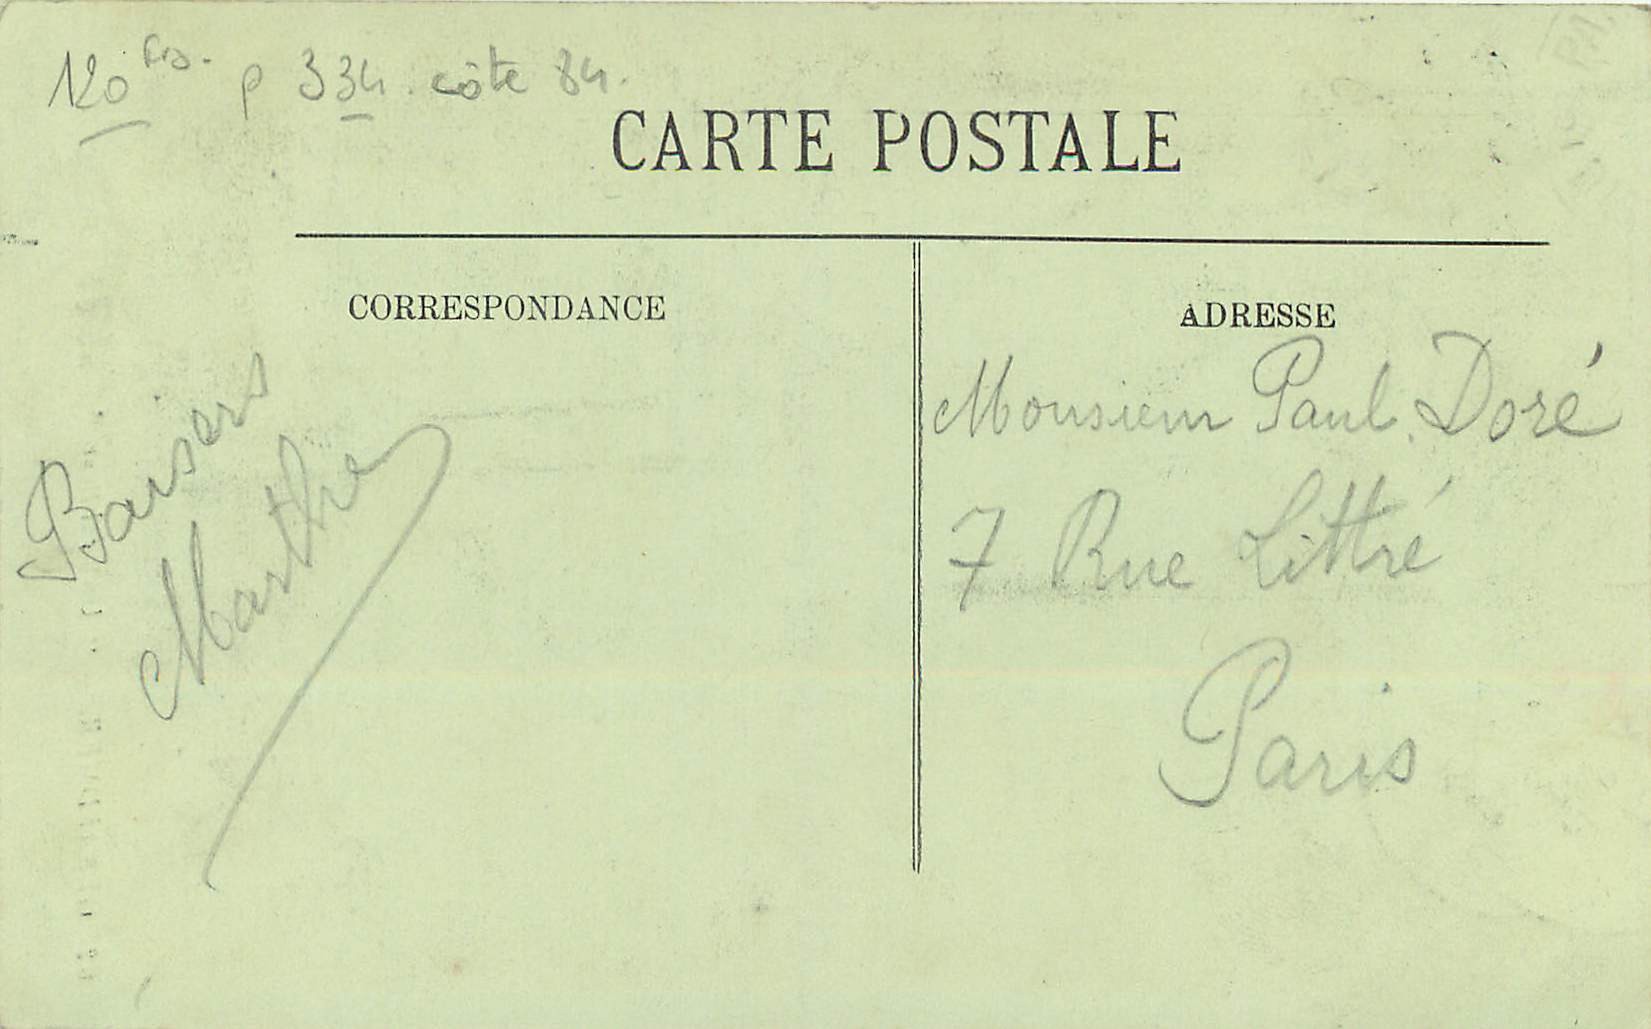 120 frs. p 334. côte 84.
CARTE POSTALE
CORRESPONDANCE
ADRESSE
Baisers
Marthe
Monsieur Paul Doré
7 Rue Littré
Paris